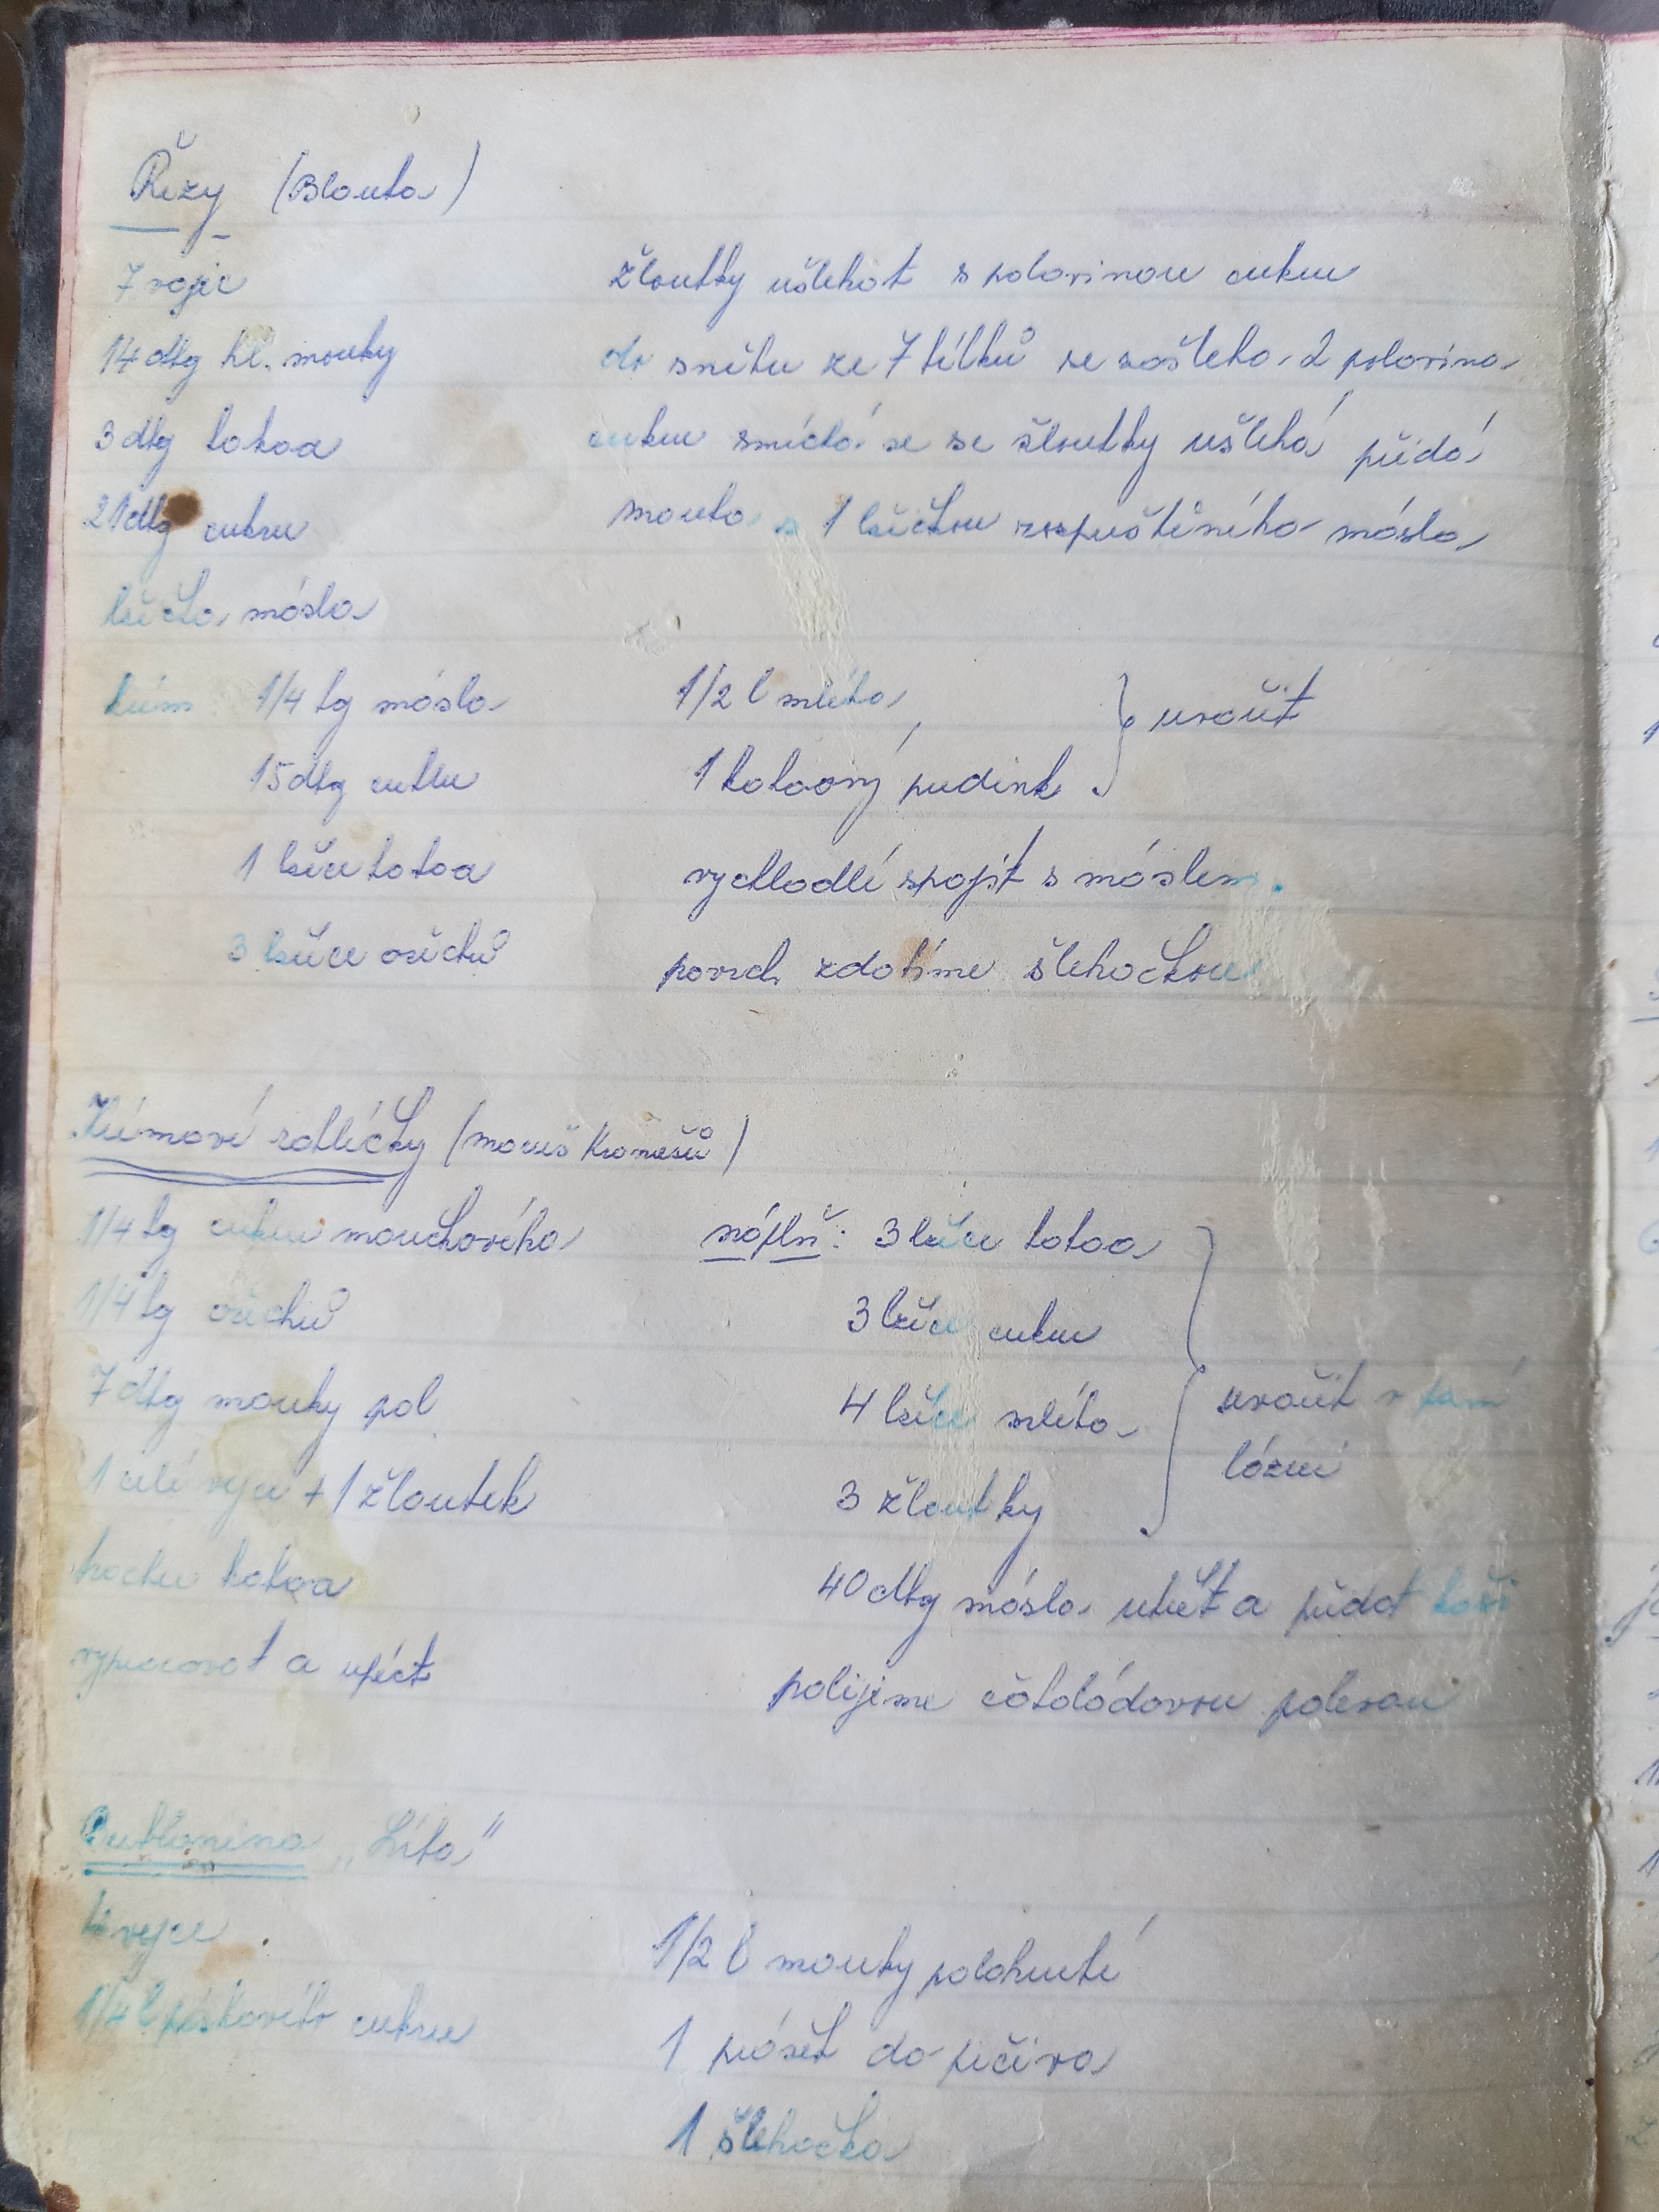 Řezy (Blanka)
7 vajec
14 dkg hl. mouky
3 dkg kakaa
21 dkg cukru
lžička másla
žloutky ušlehat s polovinou cukru
do sněhu ze 7 bílků se zašlehá 2 polovina
cukru smíchá se se žloutky ušlehá přidá
mouka s 1 lžičkou rozpuštěného másla
krém 1/4 kg másla
15 dkg cukru
1 lžíce kakaa
3 lžíce ořechů
1/2 l mléka
1 kakaový pudink
uvařit
vychladlé spojit s máslem.
povrch zdobíme šlehačkou
Krémové rohlíčky (
1/4 kg cukru moučkového
1/4 kg ořechů
7 dkg mouky pol
1 celé vejce + 1 žloutek
trochu kakaa
vypracovat a upéct
náplň: 3 lžíce kakaa
3 lžíce cukru
4 lžíce mléka
3 žloutky
uvařit v parní
lázni
40 dkg másla utřít a přidat kaši
polijeme čokoládovou polevou
Bublanina „Líba"
4 vejce
1/4 l pískového cukru
1/2 l mouky polohrubé
1 prášek do pečiva
1 šlehačka